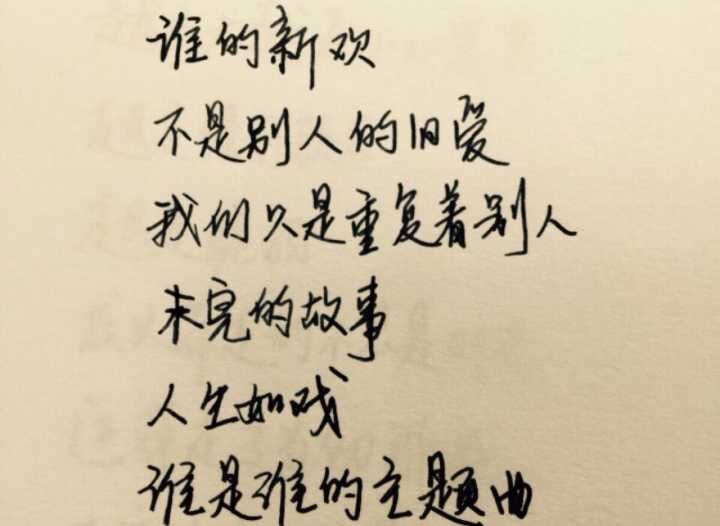 谁的新欢
不是别人的旧爱
我们只是重复着别人
未完的故事
人生如戏
谁是谁的主题曲